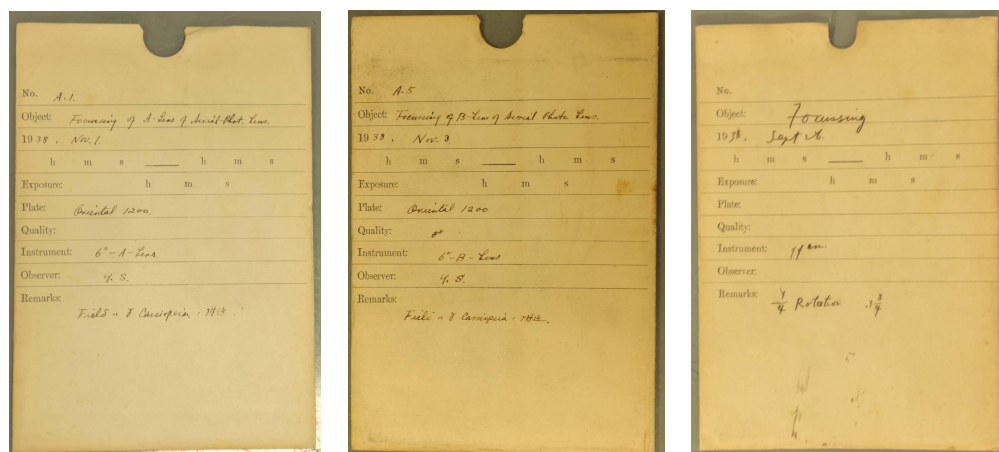 No. A.1.
Object: Focussing of A-Lens of Aerial-Phot. Lens.
1938. Nov. 1.
h m s — h m s
Exposure: h m s
Plate: Oriental 1200.
Quality:
Instrument: 6"-A-Lens
Observer: Y. S.
Remarks:
Field = γ Cassiopeia,
No. A.5
Object: Focussing of B-Lens of Aerial Photo. Lens.
1938. Nov. 3.
h m s — h m s
Exposure: h m s
Plate: Oriental 1200
Quality:
Instrument: 6"-B-Lens
Observer: Y. S.
Remarks:
Field = γ Cassiopeia,
No.
Object: Focussing
1938. Sept 26.
h m s — h m s
Exposure: h m s
Plate:
Quality:
Instrument:
Observer:
Remarks:
Rotation